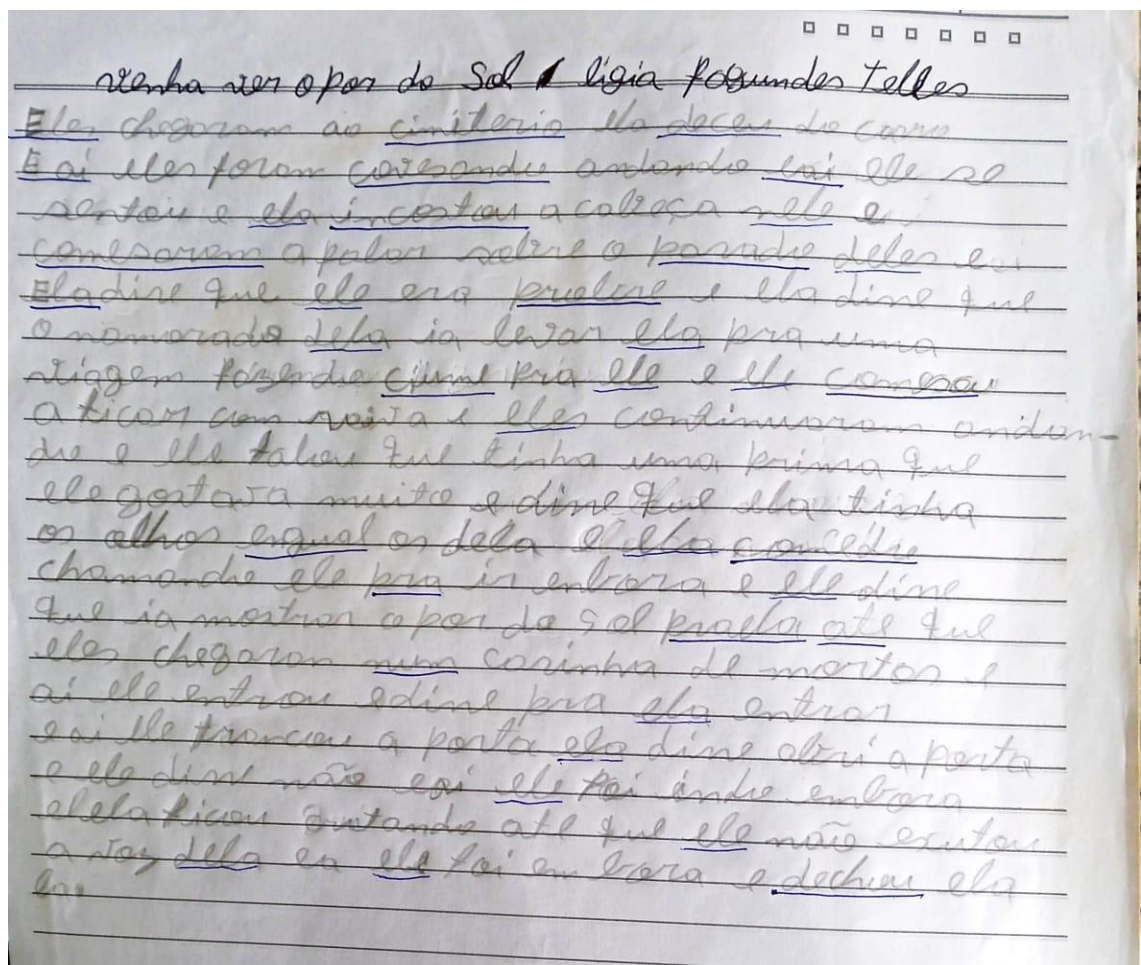 venha ver o por do Sol ligia fagundes Telles
Eles chegaram ao cimiterio ela deceu do carro
E ai eles foram comesando andando eai ele se
sentou e ela incostou a cabeça nele e
comesaram a falar sobre o passado deles e
Ela disse que ele era pruebre e ela disse que
o namorado dela ia levar ela pra uma
viagem fazendo ciume pra ele e ele comesou
a ficar com raiva e eles continuaram andan-
do e ele falou que tinha uma prima que
ele gostava muito e disse que ela tinha
os olhos engual os dela e ela
chamando ele pra ir enbora e ele disse
que ia mostrar o por do Sol praela até que
eles chegaram num casinha de mortos e
ai ele entrou e disse pra ela entrar
e ai ele trancou a porta ela disse abri a porta
e ele disse não eai ele foi indo embora
e ela ficou gritando até que ele não escutou
a voz dela ea ele foi em bora e dechou ela